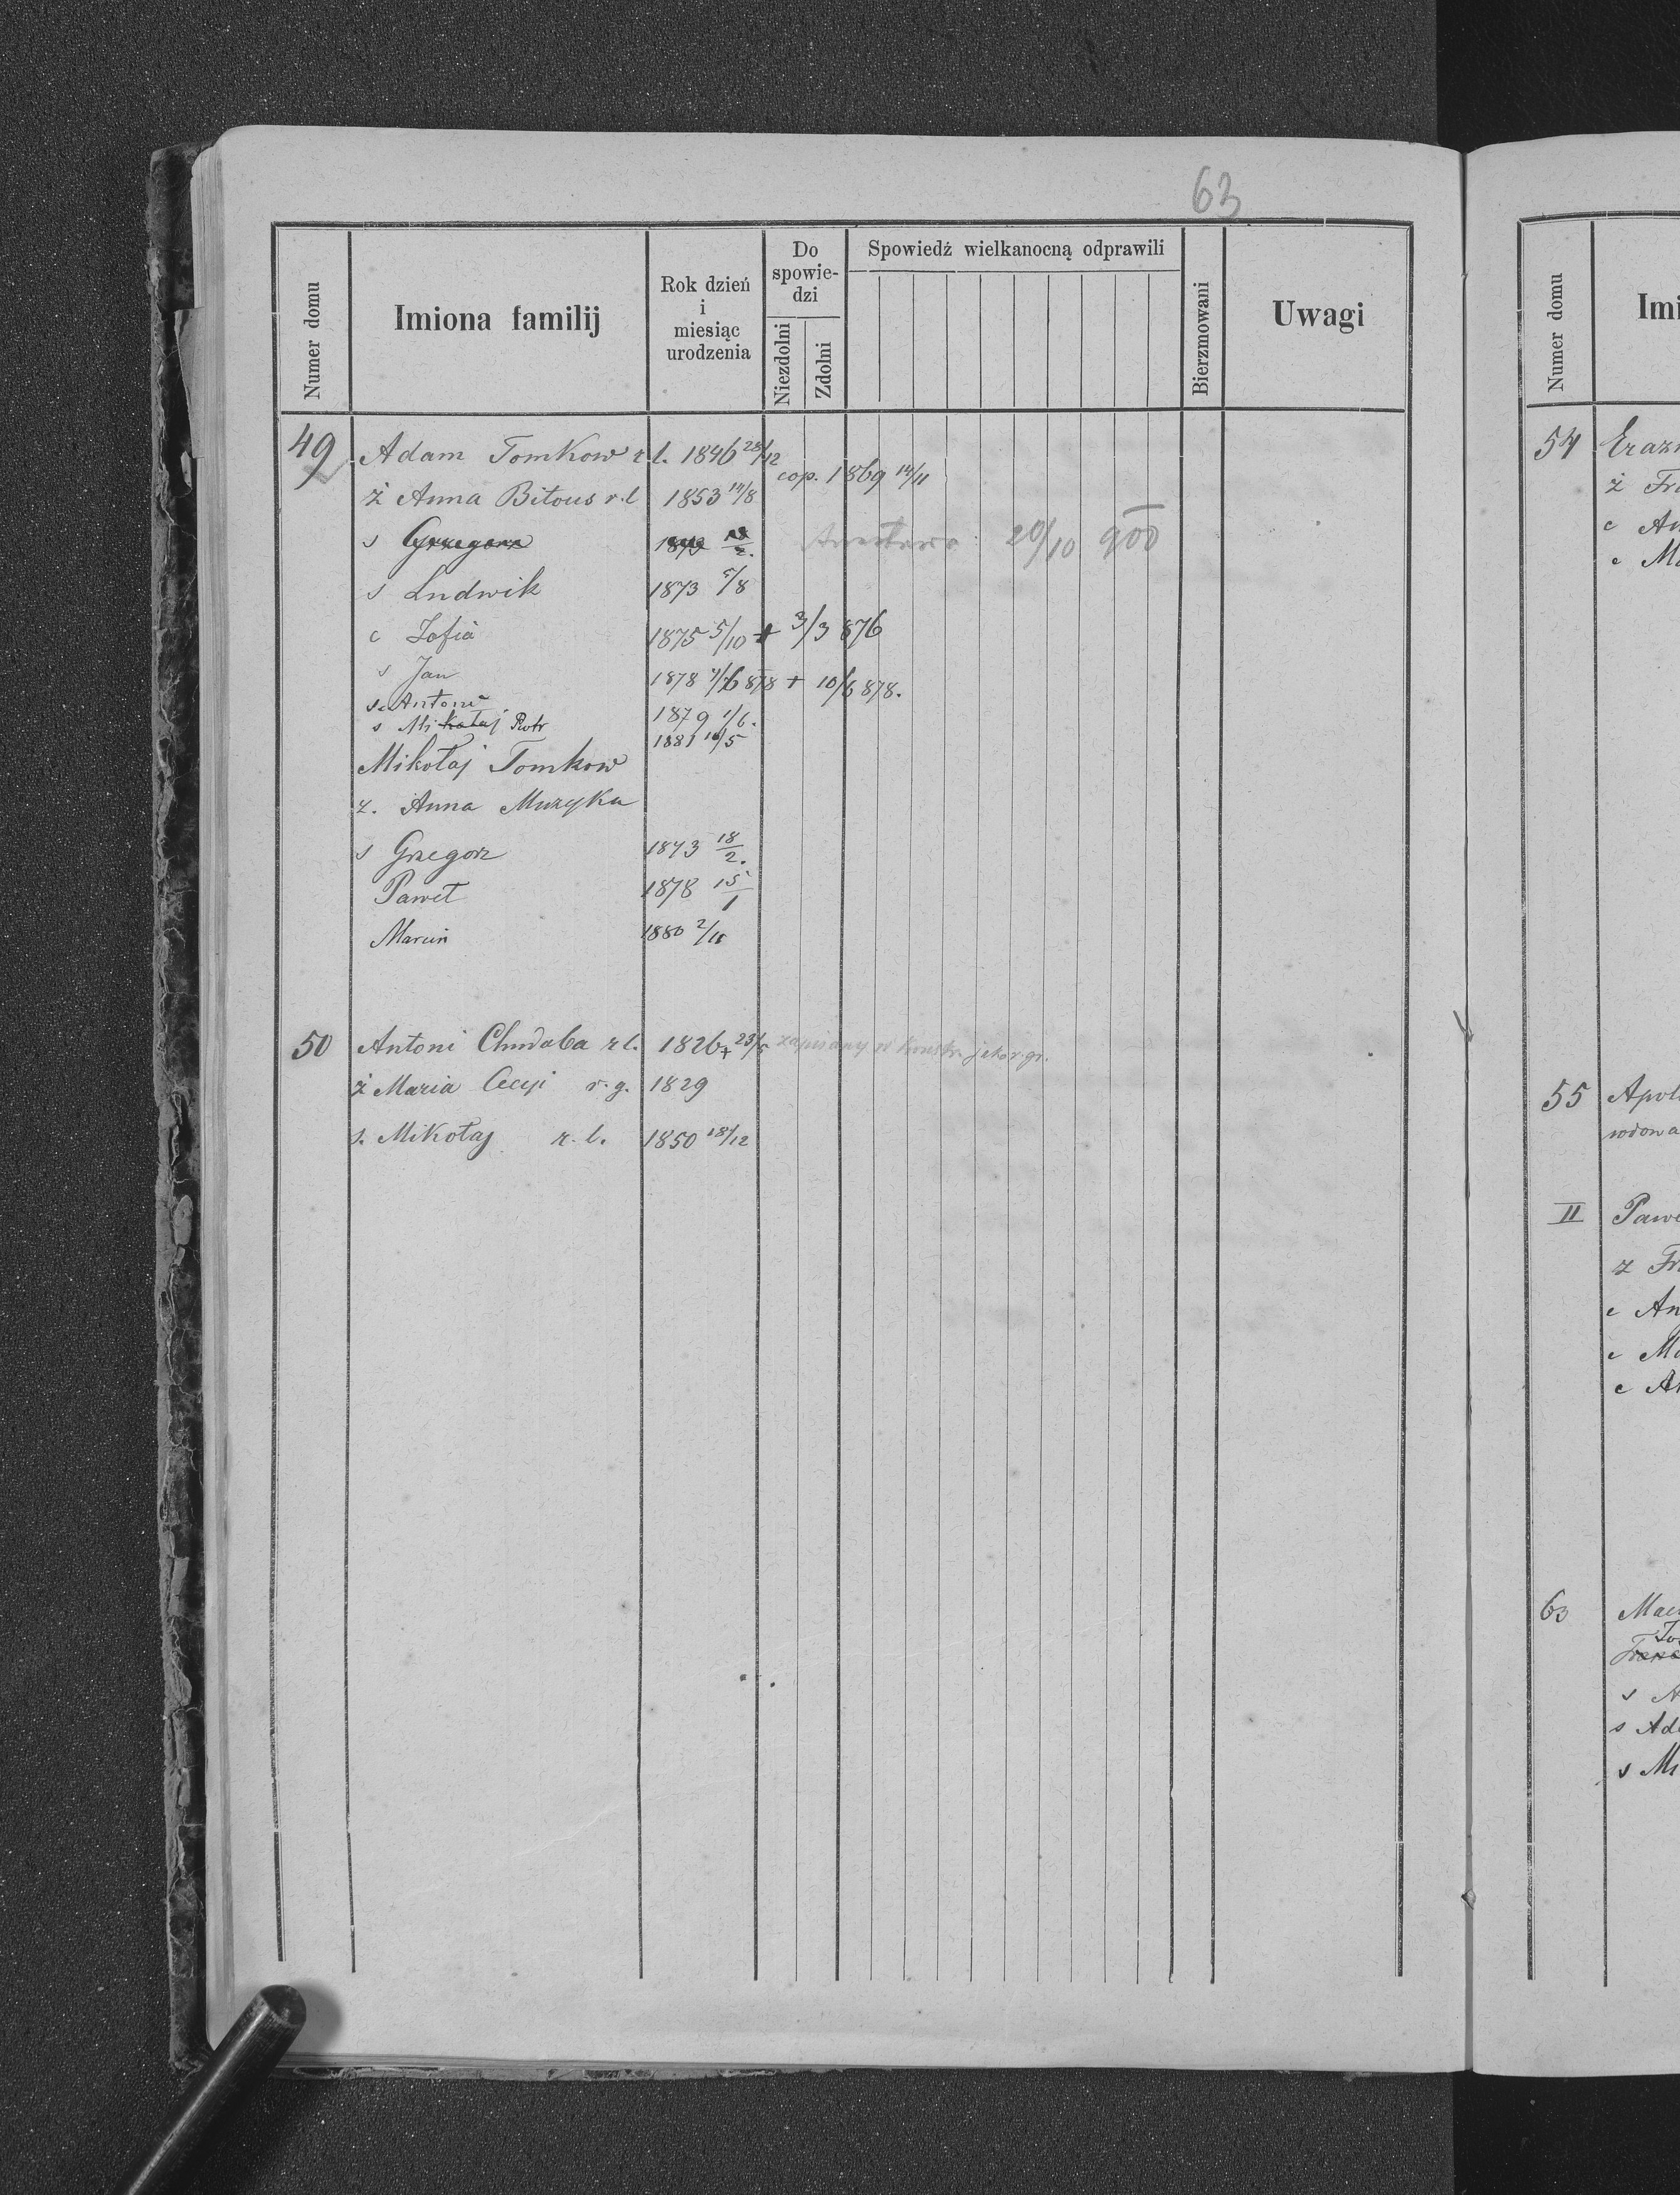 63
Numer domu | Imiona familij | Rok dzień i miesiąc urodzenia | Do spowie-dzi | Niezdolni | Zdolni | Spowiedź wielkanocną odprawili | Bierzmowani | Uwagi
49 Adam Tomkow r l. 1846 28/12
cop. 1869 14/11
ż Anna Bitous r. l 1853 14/8
s Grzegorz 20/10 900
s Ludwik 1873 5/8
c Zofia 1875 5/10 + 3/3 876
s Jan 1878 + 10/6 878.
s. Antoni 1879 1/6.
s Mikołaj Piotr 1881 /5
Mikołaj Tomkow
ż. Anna Muzyka
s Grzegorz 1873 18/2.
Paweł 1878 15/1
Marcin 1880 2/11
50 Antoni Chudoba r l. 1826 + 23/5 zapisany w jako r. gr.
ż Maria r. g. 1829
s. Mikołaj r. l. 1850 18/12
Numer domu | Imi
54 Erazm
ż Fr
c An
c Ma
55 Apol
wdowa
II Pawe
ż Fr
c An
c Ma
c A
63 Mac
s Ada
s Mi